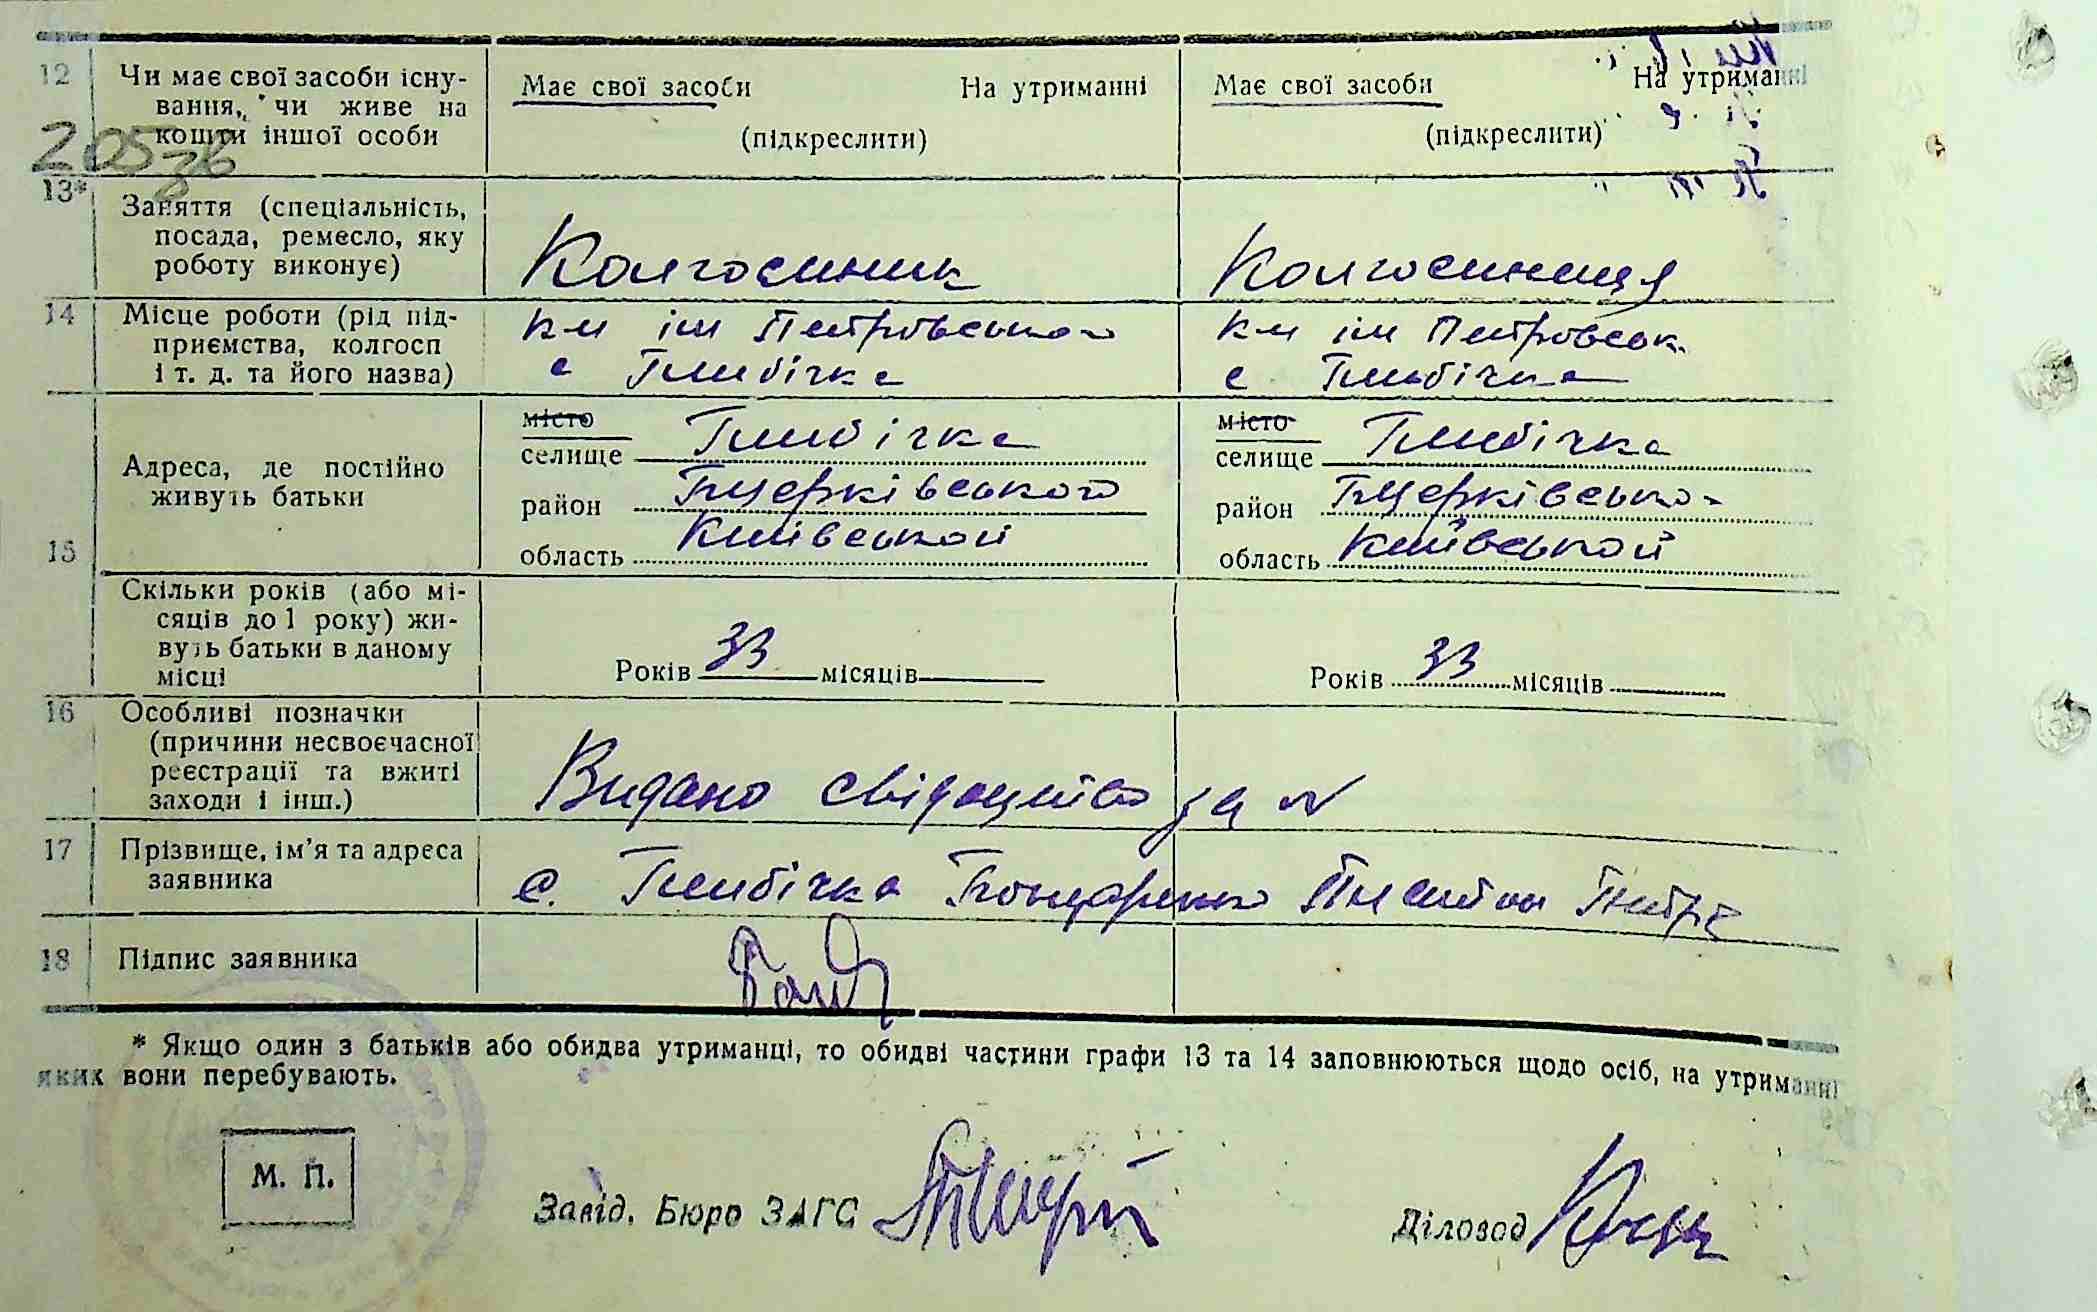 12 Чи має свої засоби існу-
вання, чи живе на
кошти іншої особи
Має свої засоби На утриманні
(підкреслити)
Має свої засоби На утриманні
(підкреслити)
20536
13* Заняття (спеціальність,
посада, ремесло, яку
роботу виконує)
Колгоспник
Колгоспниця
14 Місце роботи (рід під-
приємства, колгосп
і т. д. та його назва)
км ім Петровського
с Глибічка
км ім Петровськ.
с. Глибічка
15 Адреса, де постійно
живуть батьки
місто
селище Глибічка
район Бцерківського
область Київської
місто
селище Глибічка
район Бцерківсько-
область Київської
Скільки років (або мі-
сяців до 1 року) жи-
вуть батьки в даному
місці
Років 33 місяців
Років 33 місяців
16 Особливі позначки
(причини несвоєчасної
реєстрації та вжиті
заходи і інш.)
Видано свідоцтво за N
17 Прізвище, ім'я та адреса
заявника
с. Глибічка Гончаренко
18 Підпис заявника
* Якщо один з батьків або обидва утриманці, то обидві частини графи 13 та 14 заповнюються щодо осіб, на утриманні
яких вони перебувають.
М. П.
Завід. Бюро ЗАГС
Діловод